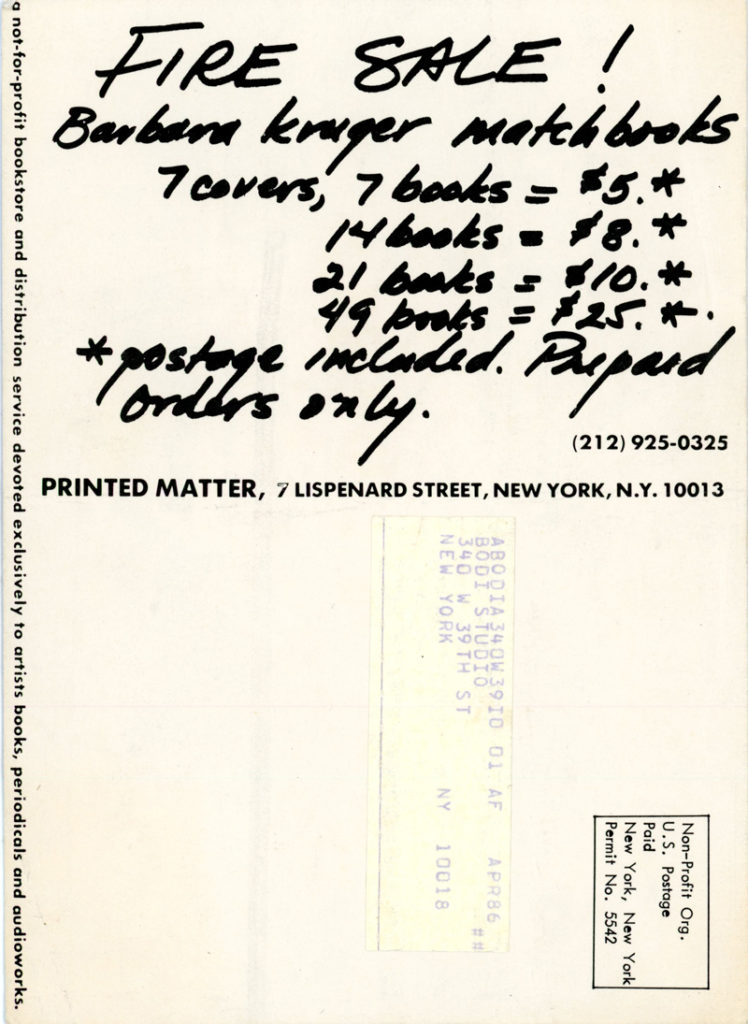 FIRE SALE!
Barbara kruger matchbooks
7 covers, 7 books = $5.*
14 books = $8.*
21 books = $10.*
49 books = $25.*
*postage included. Prepaid
orders only.
(212) 925-0325
PRINTED MATTER, 7 LISPENARD STREET, NEW YORK, N.Y. 10013
a not-for-profit bookstore and distribution service devoted exclusively to artists books, periodicals and audioworks.
ABODIA340W39IO 01 AF APR86
BODI STUDIO ##
340 W 39TH ST
NEW YORK NY 10018
Non-Profit Org.
U.S. Postage
Paid
New York, New York
Permit No. 5542